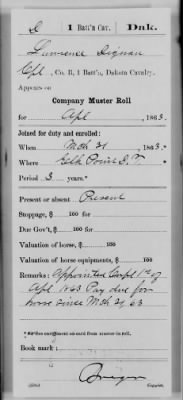 D 1 Batt'n Cav. Dak.
Lawrence Dignan
Cpl., Co. B, 1 Batt'n, Dakota Cavalry.
Appears on
Company Muster Roll
for Apl, 1863.
Joined for duty and enrolled:
When Mch 21, 1863.
Where Elk Point D.T.
Period 3 years.*
Present or absent Present
Stoppage, $ 100 for
Due Gov't, $ 100 for
Valuation of horse, $ 100
Valuation of horse equipments, $ 100
Remarks: Appointed Corpl 1st of
Apl 1863 Pay due for
horse since Mch 21 63
Book mark: